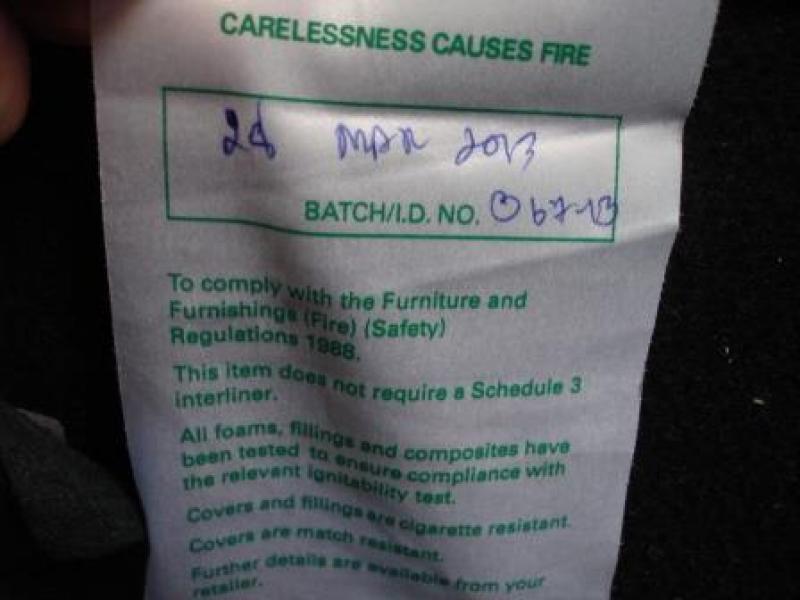 CARELESSNESS CAUSES FIRE
MAR 2013
BATCH/I.D. NO.
To comply with the Furniture and
Furnishings (Fire) (Safety)
Regulations 1988.
This item does not require a Schedule 3
interliner.
All foams, fillings and composites have
been tested to ensure compliance with
the relevant ignitability test.
Covers and fillings are cigarette resistant.
Covers are match resistant.
Further details are available from your
retailer.